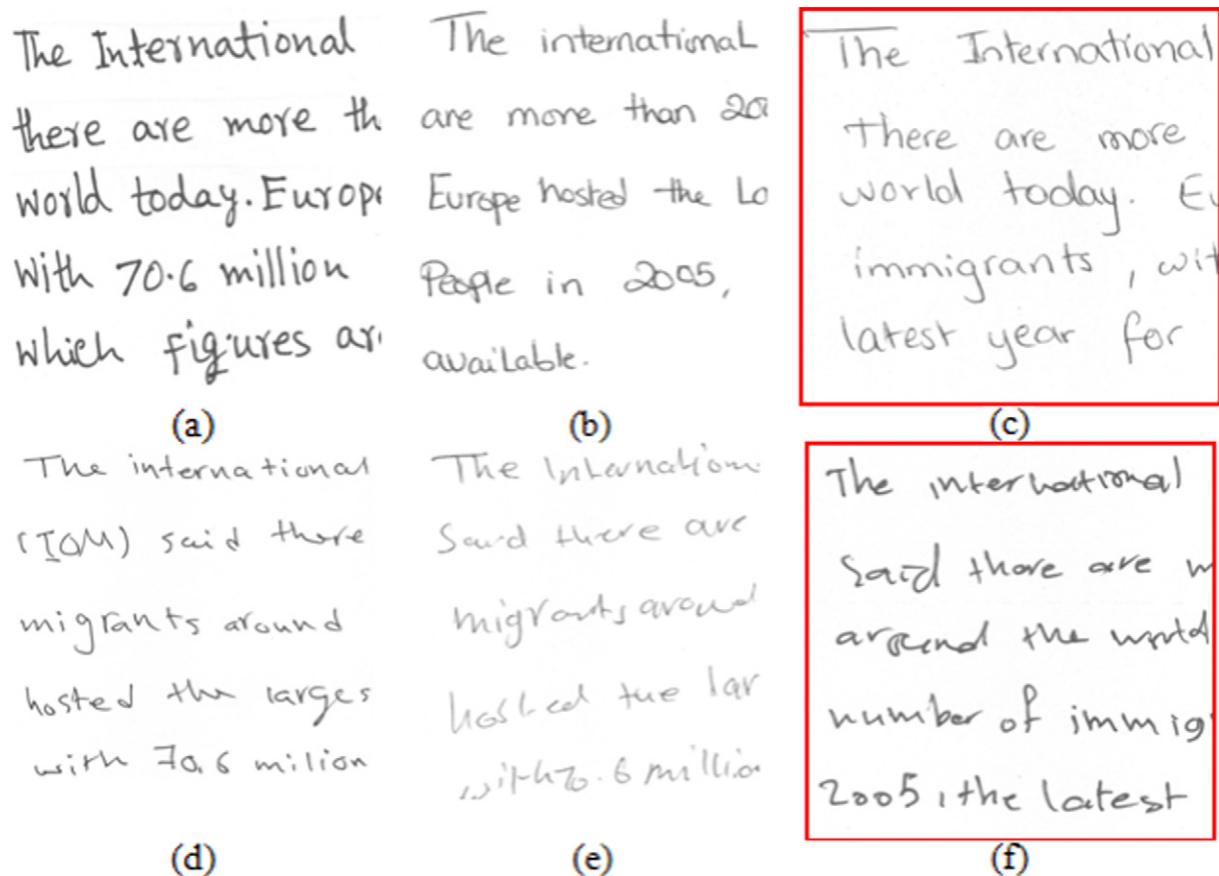 The International
there are more th
world today. Europe
With 70.6 million
which figures are
(a)
The international
are more than 200
Europe hosted the Lo
People in 2005,
available.
(b)
The International
There are more
world today. Eu
immigrants, wit
latest year for
(c)
The international
(IOM) said there
migrants around
hosted the larges
with 70.6 milion
(d)
The Internationa
Said there are
migrants around
hosted the lar
with 70.6 millio
(e)
The international
Said there are m
around the world
number of immig
2005, the latest
(f)